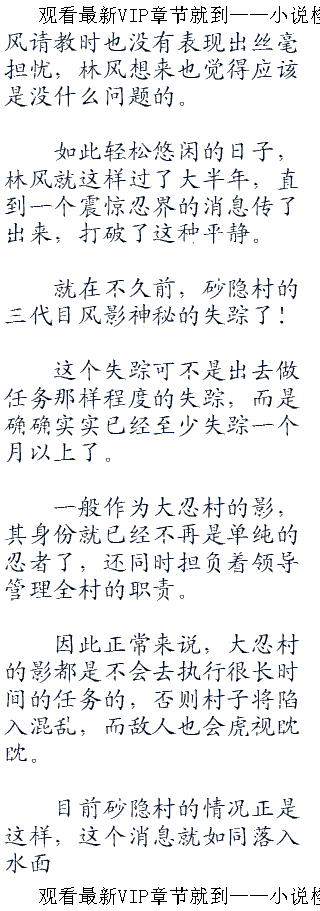 观看最新VIP章节就到——小说检
风请教时也没有表现出丝毫
担忧，林风想来也觉得应该
是没什么问题的。
如此轻松悠闲的日子，
林风就这样过了大半年，直
到一个震惊忍界的消息传了
出来，打破了这种平静。
就在不久前，砂隐村的
三代目风影神秘的失踪了！
这个失踪可不是出去做
任务那样程度的失踪，而是
确确实实已经至少失踪一个
月以上了。
一般作为大忍村的影，
其身份就已经不再是单纯的
忍者了，还同时担负着领导
管理全村的职责。
因此正常来说，大忍村
的影都是不会去执行很长时
间的任务的，否则村子将陷
入混乱，而敌人也会虎视眈
眈。
目前砂隐村的情况正是
这样，这个消息就如同落入
水面
观看最新VIP章节就到——小说检